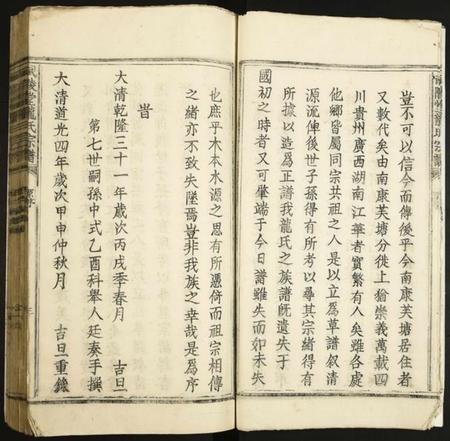 豈不可以信今而傳後乎今南康芙塘居住者
又數代矣由南康芙塘分徙上猶崇義萬載四
川貴州廣西湖南江華者實繁有人矣雖各處
他鄉皆屬同宗共祖之人是以立爲草譜叙清
源流俾後世子孫得有所考以尋其宗緒得有
所據以造爲正譜我龍氏之族譜既遺失于
國初之時者又可肇端于今日譜雖失而如未失
也庶乎木本水源之思有所憑倚而祖宗相傳
之緒亦不致失墜焉豈非我族之幸哉是爲序
旹
大清乾隆三十一年歲次丙戌季春月 吉旦
第七世嗣孫中式乙酉科舉人廷奏手撰
大清道光四年歲次甲申仲秋月 吉旦重鐫
龍氏宗譜